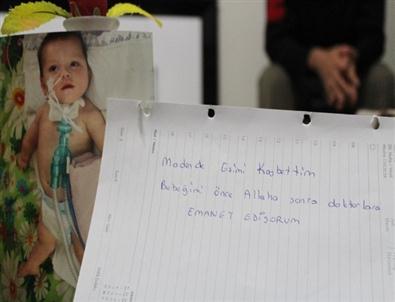 Madende Eşimi Kaybettim
Bebeğimi önce Allaha sonra doktorlara
EMANET EDİYORUM